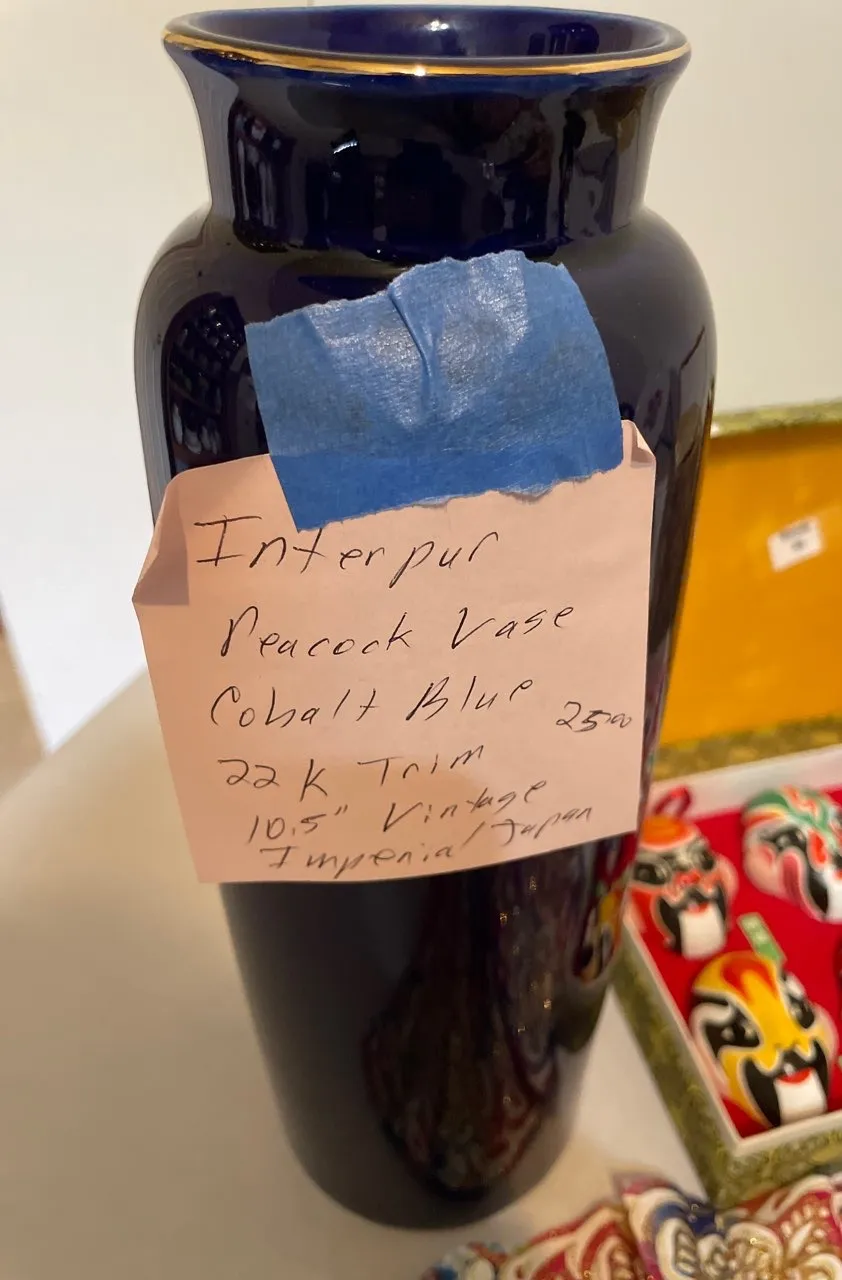 Interpur
Peacock Vase
Cobalt Blue 25.00
22 K Trim
10.5" Vintage
Imperial Japan